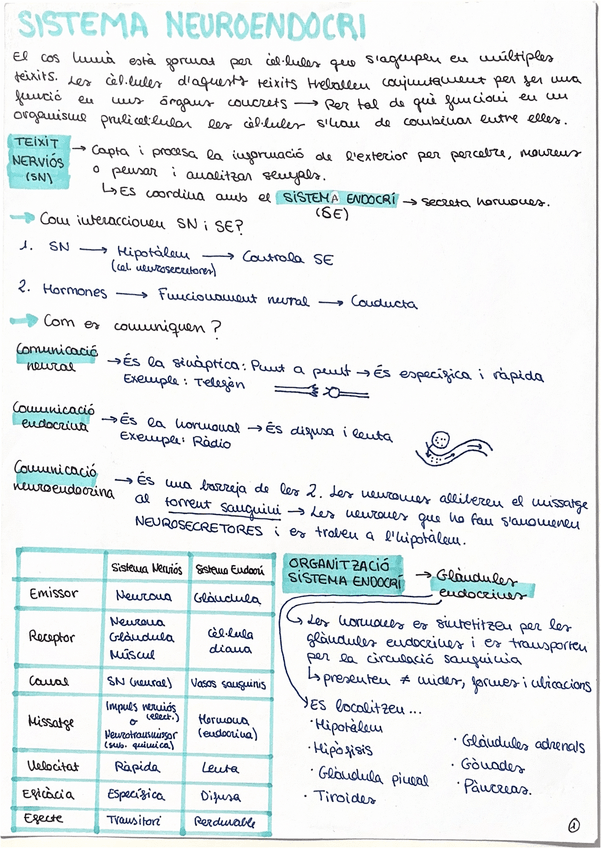 SISTEMA NEUROENDOCRI
El cos humà està format per cèl·lules que s'agrupen en múltiples
teixits. Les cèl·lules d'aquests teixits treballen conjuntament per fer una
funció en uns òrgans concrets → Per tal de què funcioni en un
organisme pluricel·lular les cèl·lules s'han de combinar entre elles.
TEIXIT
NERVIÓS
(SN)
→ Capta i procesa la informació de l'exterior per percebre, moure'ns
o pensar i analitzar senyals.
↳ Es coordina amb el SISTEMA ENDOCRÍ → secreta hormones.
(SE)
→ Com interaccionen SN i SE?
1. SN → Hipotàlem → Controla SE
(cel. neurosecretores)
2. Hormones → Funcionament neural → Conducta
→ Com es comuniquen?
Comunicació
neural
→ És la sinàptica: Punt a punt → És específica i ràpida
Exemple: Telefòn
Comunicació
endocrina
→ És la hormonal → És difusa i lenta
Exemple: Ràdio
Comunicació
neuroendocrina
→ És una barreja de les 2. Les neurones alliberen el missatge
al torrent sanguini → Les neurones que ho fan s'anomenen
NEUROSECRETORES i es troben a l'hipotàlem.
Sistema Nerviós Sistema Endocrí
Emissor Neurona Glàndula
Receptor Neurona Glàndula Múscul cèl·lula diana
Canal SN (neural) Vasos sanguinis
Missatge Impuls nerviós (elect.) o Neurotransmissor (sub. química) Hormona (endocrina)
Velocitat Ràpida Lenta
Eficàcia Específica Difusa
Efecte Transitori Perdurable
ORGANITZACIÓ
SISTEMA ENDOCRÍ
→ Glàndules
endocrines
↳ Les hormones es sintetitzen per les
glàndules endocrines i es transporten
per la circulació sanguínia
↳ presenten ≠ mides, formes i ubicacions
ES localitzen...
· Hipotàlem
· Hipòfisis
· Glàndula pineal
· Tiroides
· Glàndules adrenals
· Gònades
· Pàncreas.
1